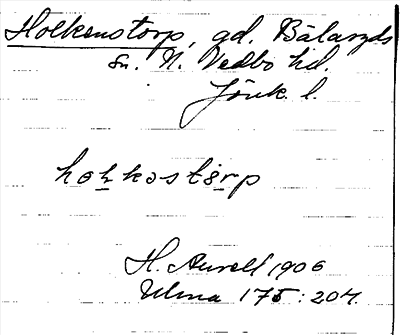 Holkenstorp, gd. Bälaryds
sn. N. Vedbo hd.
Jönk. l.
hokkəstərp
H. Aurell 1906
Ulma 175:204.